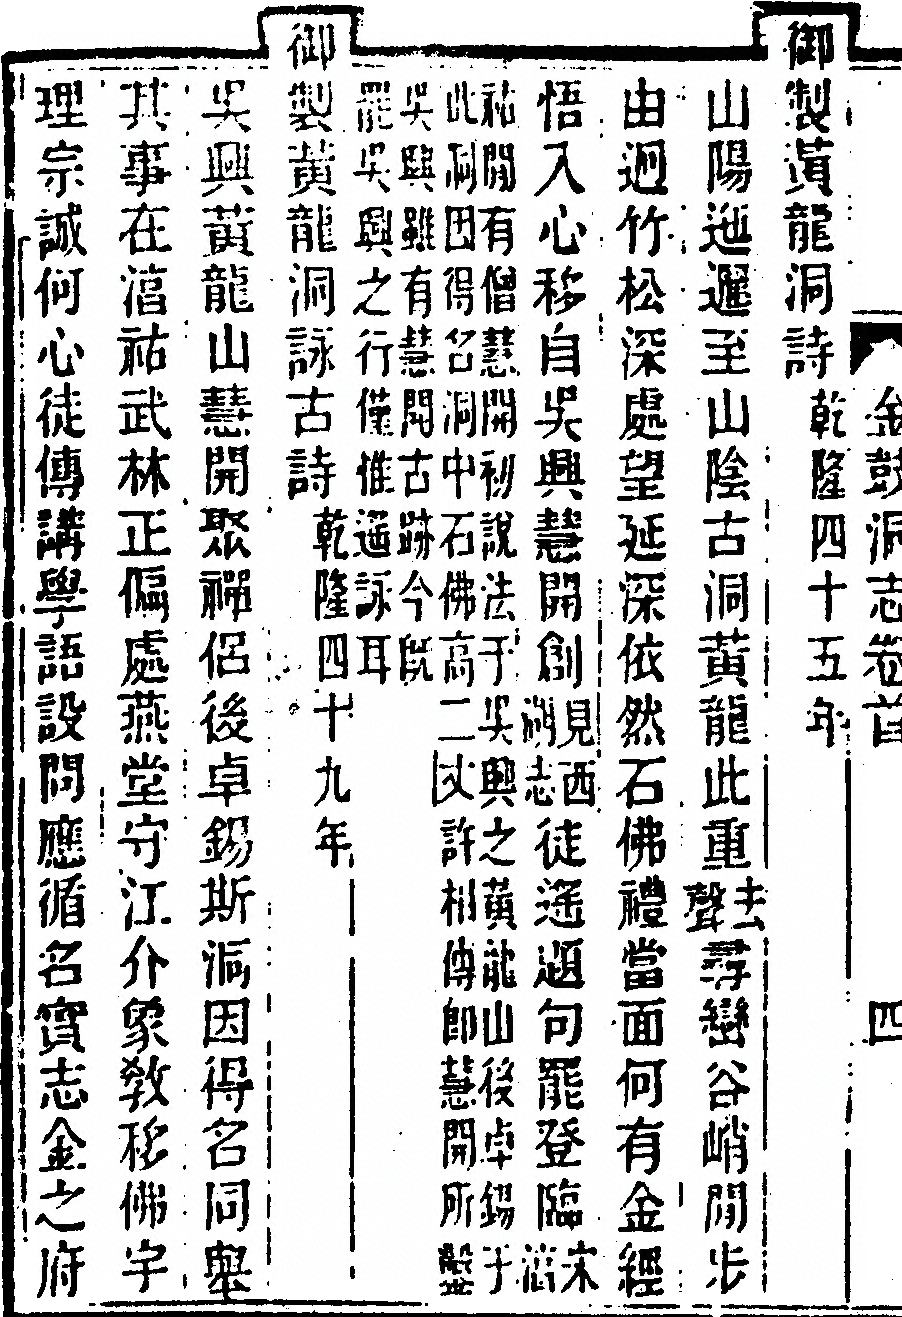 金鼓洞志卷首 四
御製黃龍洞詩 乾隆四十五年
山陽迤邐至山陰古洞黃龍此重去聲尋巒谷峭閒步
由迥竹松深處望延深依然石佛禮當面何有金經
悟入心移自吳興慧開創見西湖志徒遙題句罷登臨宋湻
祐閒有僧慧開初說法于吳興之黃龍山後卓錫于
此洞因得名洞中石佛高二丈許相傳卽慧開所鑿
吳興雖有慧開古跡今旣
罷吳興之行僅惟遙詠耳
御製黃龍洞詠古詩 乾隆四十九年
吳興黃龍山慧開聚禪侶後卓錫斯洞因得名同舉
其事在湻祐武林正偏處燕堂守江介象敎移佛宇
理宗誠何心徒傳講學語設問應循名實志金之府